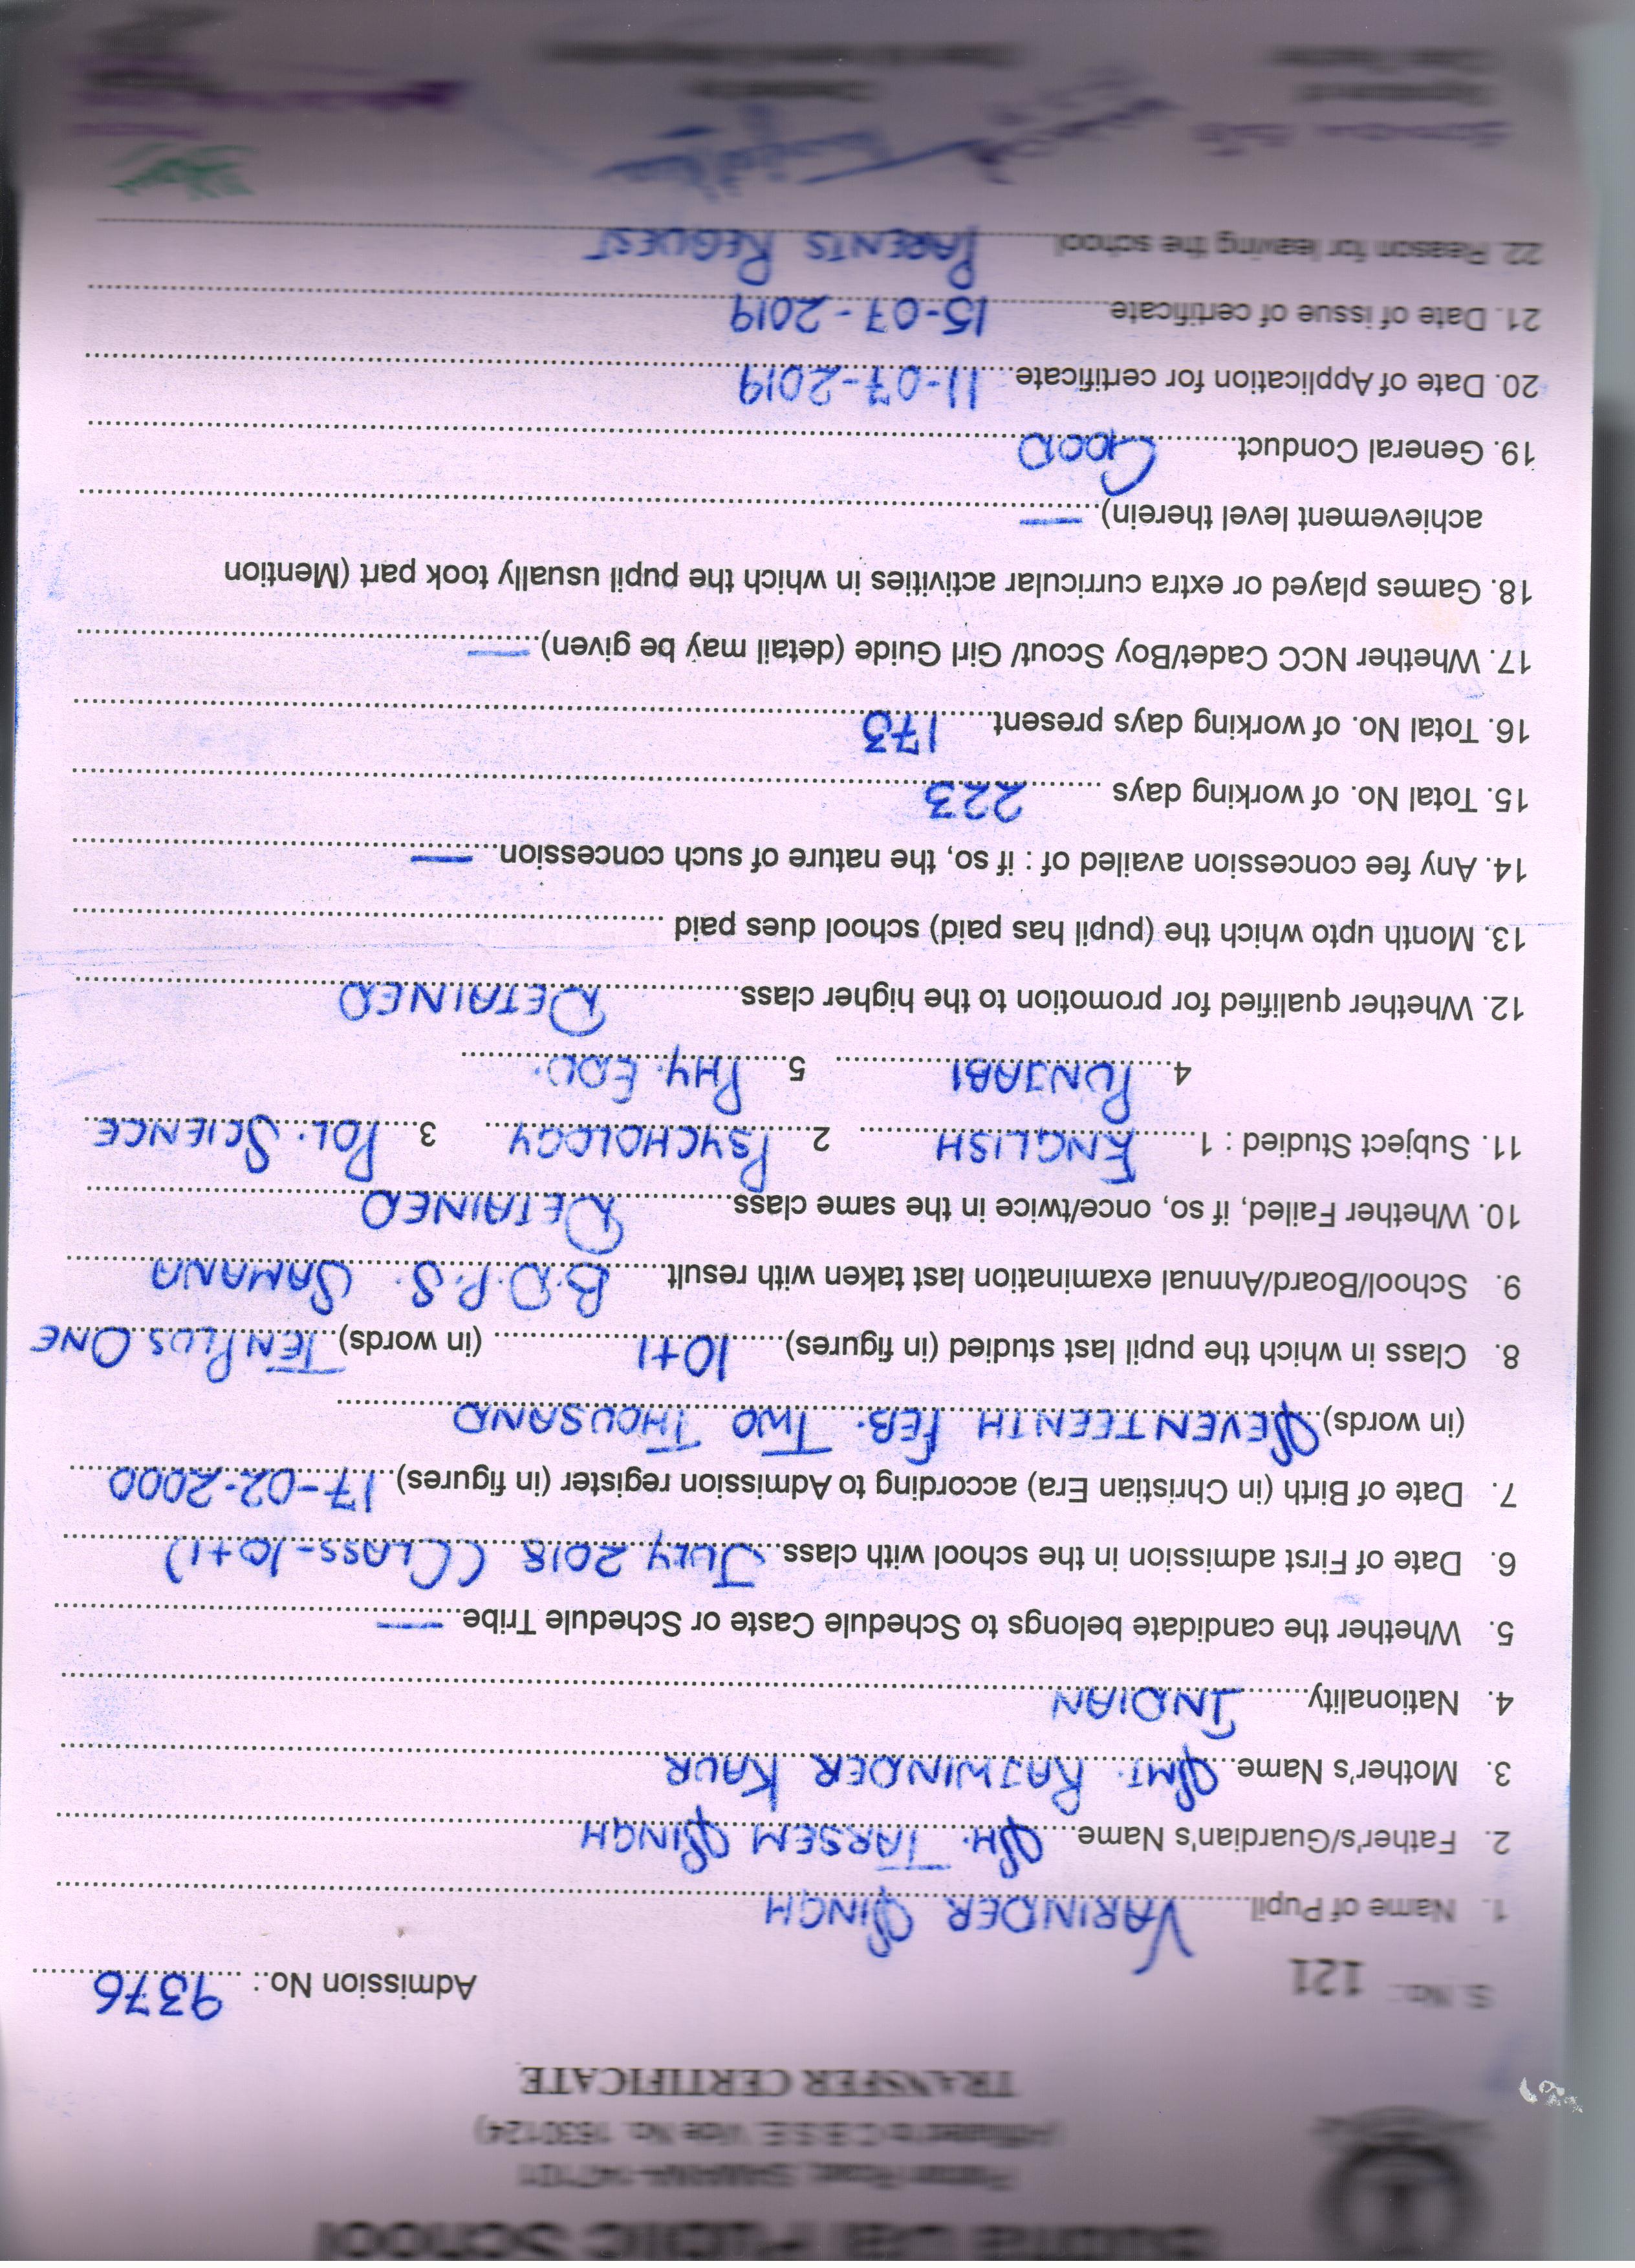 Public School
SAMANA-147101
(Affiliated to C.B.S.E. Vide No. 1630124)
TRANSFER CERTIFICATE
S. No.: 121 Admission No.: 9376
1. Name of Pupil VARINDER SINGH
2. Father's/Guardian's Name SH. TARSEM SINGH
3. Mother's Name SMT. RAJWINDER KAUR
4. Nationality INDIAN
5. Whether the candidate belongs to Schedule Caste or Schedule Tribe —
6. Date of First admission in the school with class JULY 2018 (CLASS-10+1)
7. Date of Birth (in Christian Era) according to Admission register (in figures) 17-02-2000
(in words) SEVENTEENTH FEB. TWO THOUSAND
8. Class in which the pupil last studied (in figures) 10+1 (in words) TEN PLUS ONE
9. School/Board/Annual examination last taken with result B.D.P.S. SAMANA
10. Whether Failed, if so, once/twice in the same class DETAINED
11. Subject Studied : 1 ENGLISH 2 PSYCHOLOGY 3 POL. SCIENCE
4 PUNJABI 5 PHY. EDU.
12. Whether qualified for promotion to the higher class DETAINED
13. Month upto which the (pupil has paid) school dues paid
14. Any fee concession availed of : if so, the nature of such concession —
15. Total No. of working days 223
16. Total No. of working days present 173
17. Whether NCC Cadet/Boy Scout/ Girl Guide (detail may be given) —
18. Games played or extra curricular activities in which the pupil usually took part (Mention
achievement level therein) —
19. General Conduct GOOD
20. Date of Application for certificate 11-07-2019
21. Date of issue of certificate 15-07-2019
22. Reason for leaving the school PARENTS REQUEST